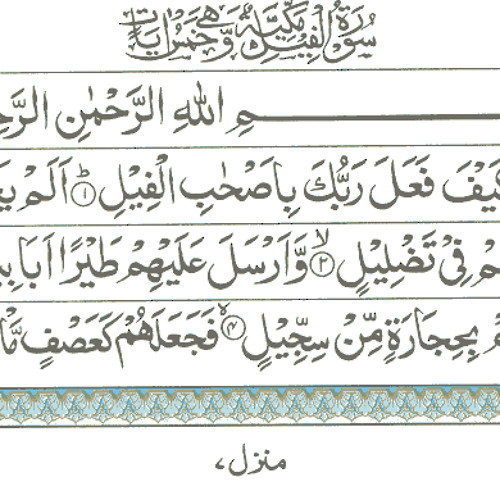 سُوْرَةُ الْفِيْلِ مَكِّيَّةٌ وَّهِيَ خَمْسُ اٰيَاتٍ
ـــمِ اللهِ الرَّحْمٰنِ الرَّحِ
كَيْفَ فَعَلَ رَبُّكَ بِاَصْحٰبِ الْفِيْلِ ۝۱ؕ اَلَمْ يَ
ـمْ فِيْ تَضْلِيْلٍ ۝۲ۙ وَّاَرْسَلَ عَلَيْهِمْ طَيْرًا اَبَابِيْ
ـمْ بِحِجَارَةٍ مِّنْ سِجِّيْلٍ ۝۴ۙ فَجَعَلَهُمْ كَعَصْفٍ مَّاْ
منزل،